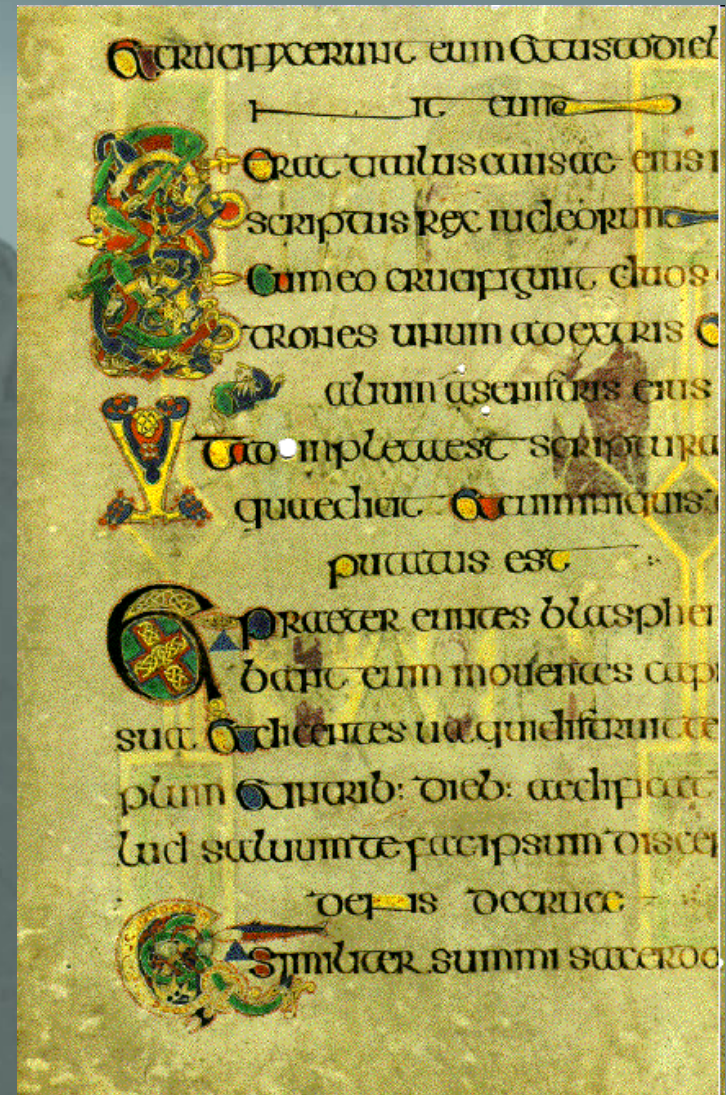 & crucifixerunt eum & custodieb
it eum
Erat titulus causae eius i
scriptus rex iudeorum
& cum eo crucifigunt duos
trones unum adextris &
alium asenistris eius
Ut adimpleta est scriptura
quae dicit & cum iniquis
putatus est
Praeter euntes blasphe
bant eum mouentes cap
sua & dicentes ua qui distruit te
plum & intrib: dieb: aedificat
lud saluum te fac ipsum discen
dens decruce
Similiter summi sacerdo